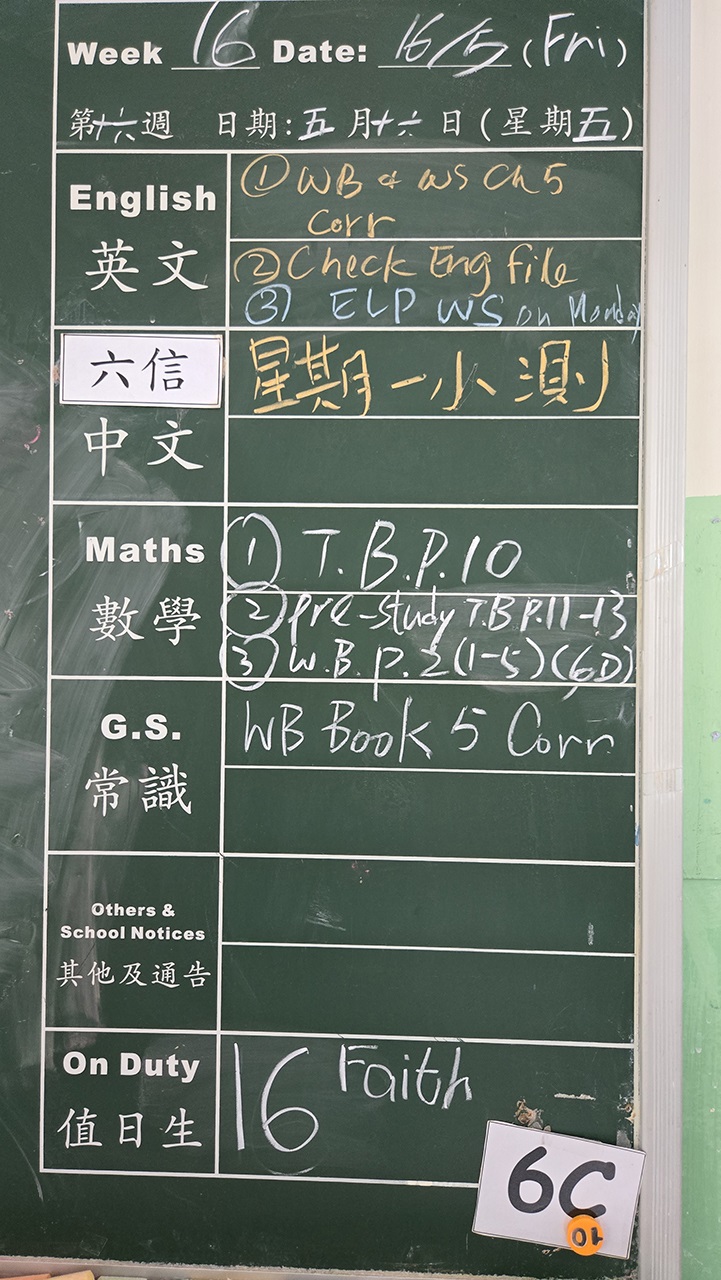 Week 16 Date: 16/5 (Fri)
第十六週 日期:五月十六日(星期五)
English
英文
① WB & WS Ch 5
Corr
② Check Eng file
③ ELP WS on Monday
六信
中文
星期一小測
Maths
數學
① T.B.P.10
② Pre-study T.B P.11-13
③ W.B.P.2(1-5)(6D)
G.S.
常識
WB Book 5 Corr
Others &
School Notices
其他及通告
On Duty
值日生
16 Faith
6C